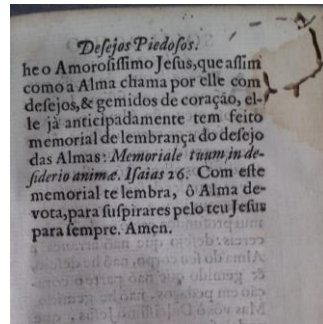 Deſejos Piedoſos.
he o Amoroſiſſimo Jeſus, que aſſim
como a Alma chama por elle com
deſejos, & gemidos de coração, el-
le jà anticipadamente tem feito
memorial de lembrança do deſejo
das Almas: Memoriale tuum, in de-
ſiderio animæ. Iſaias 26. Com eſte
memorial te lembra, ô Alma de-
vota, para ſuſpirares pelo teu Jeſus
para ſempre. Amen.